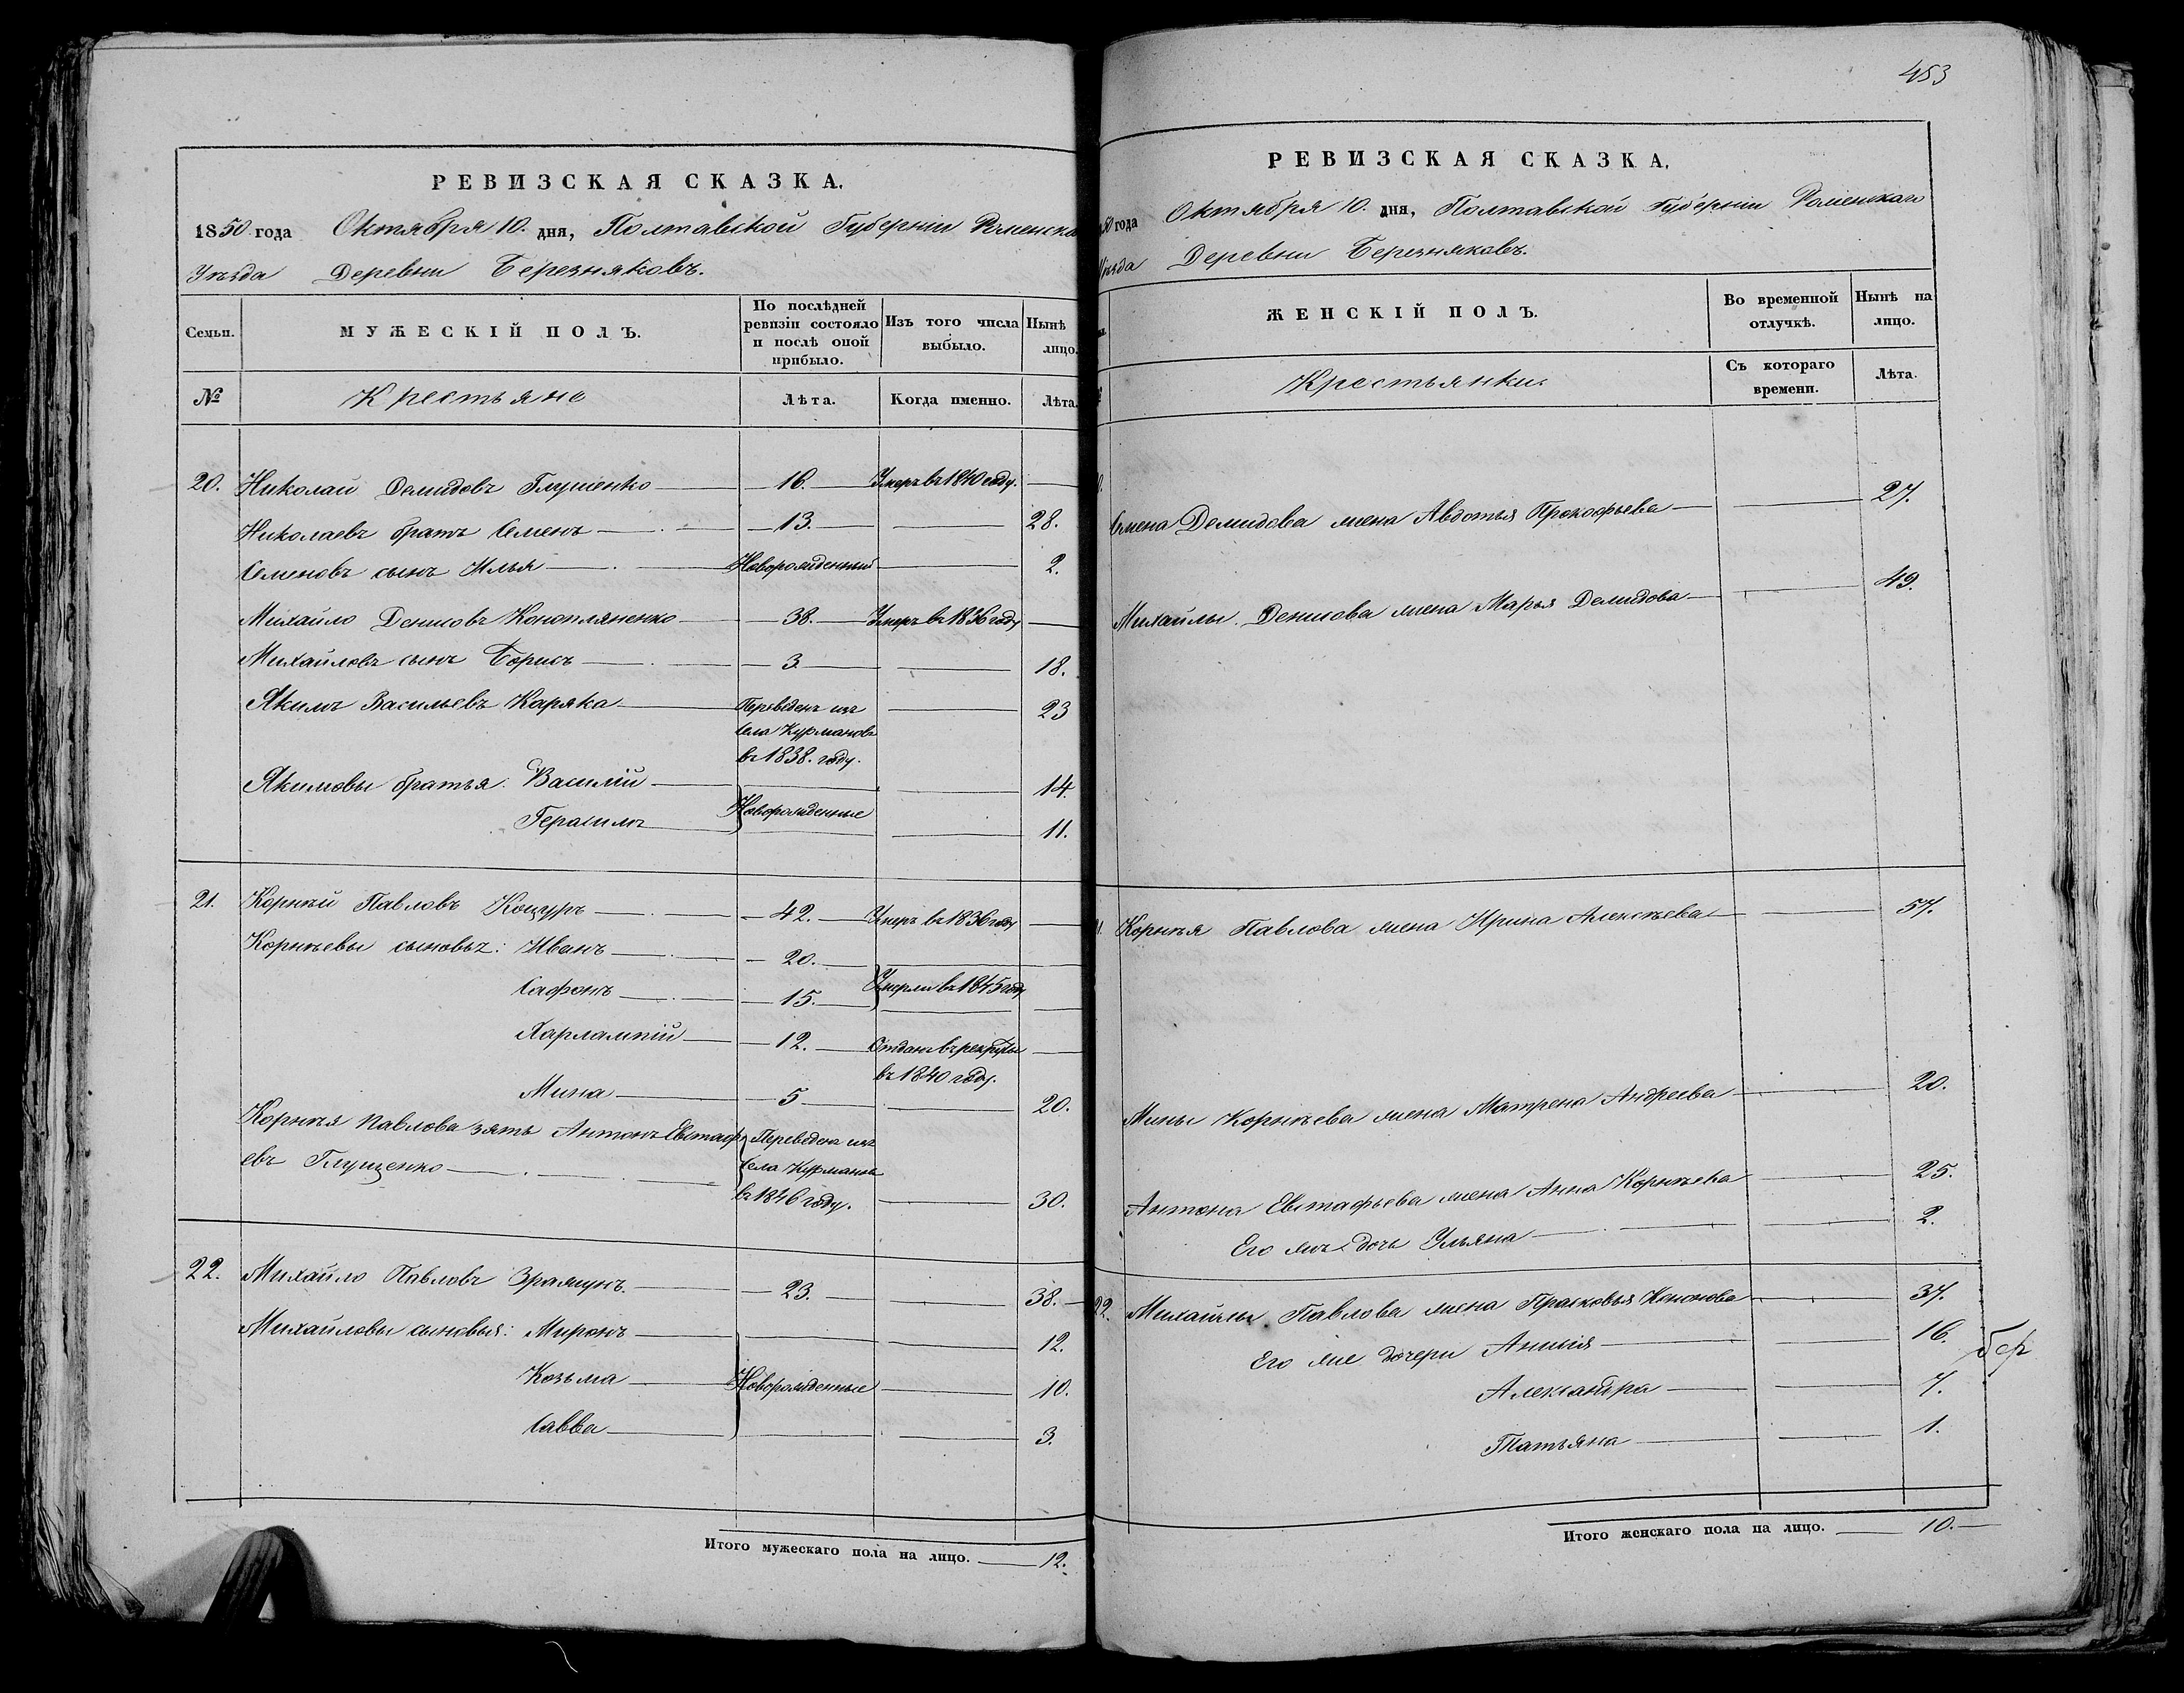 РЕВИЗСКАЯ СКАЗКА.
1850 года Октября 10. дня, Полтавской Губерніи Роменска
Уѣзда Деревни Березняковъ.
Семьи.
МУЖЕСКІЙ ПОЛЪ.
По послѣдней
ревизіи состояло
и послѣ оной
прибыло.
Изъ того числа
выбыло.
Нынѣ
лицо.
№
Крестьяне
Лѣта.
Когда именно.
Лѣта.
20. Николай Демидовъ Глущенко 16. Умеръ въ 1840 году.
Николаевъ братъ Семенъ 13. 28.
Семеновъ сынъ Илья Новорожденный 2.
Михайло Денисовъ Конопляненко 38. Умеръ въ 1836 году
Михайловъ сынъ Борисъ 3 18.
Якимъ Васильевъ Каряка Переведенъ изъ 23
села Курмановъ
въ 1838. году.
Якимовы братья: Василій 14.
Новорожденные
Герасимъ 11.
21. Корнѣй Павловъ Коцуръ 42. Умеръ въ 1836 году
Корнѣевы сыновья: Иванъ 20.
Умерли въ 1845 году
Сафонъ 15.
Харлампій 12. Отданъ въ рекруты
въ 1840 году.
Мина 5 20.
Корнѣя Павлова зять Антонъ Евстафь Переведенъ изъ
евъ Глущенко села Курмановъ
въ 1846 году. 30.
22. Михайло Павловъ 23. 38.
Михайловы сыновья: Миронъ 12.
Козьма Новорожденные 10.
Савва 3.
Итого мужескаго пола на лицо. 12.
453
РЕВИЗСКАЯ СКАЗКА.
50 года Октября 10. дня, Полтавской Губерніи Роменскаго
Уѣзда Деревни Березняковъ.
ЖЕНСКІЙ ПОЛЪ.
Во временной
отлучкѣ.
Нынѣ на
лицо.
Крестьянки.
Съ котораго
времени.
Лѣта.
Семена Демидова жена Авдотья Прокофьева 27.
Михайлы Денисова жена Марья Демидова 49.
Корнѣя Павлова жена Ирина Алексѣева 57.
Мины Корнѣева жена Матрена Андреева 20.
Антона Евстафьева жена Анна Корнѣева 25.
Его жъ дочь Ульяна 2.
22. Михайлы Павлова жена Прасковья Кононова 37.
Его же дочери Анисія 16.
Александра 7.
Татьяна 1.
Итого женскаго пола на лицо. 10.